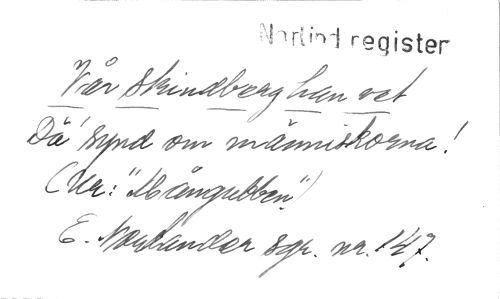 Norlind register
Vår Skindberg han vet
Då' synd om människorna!
(Ur: "Mångubben")
E. Norlander sgr. nr. 147.